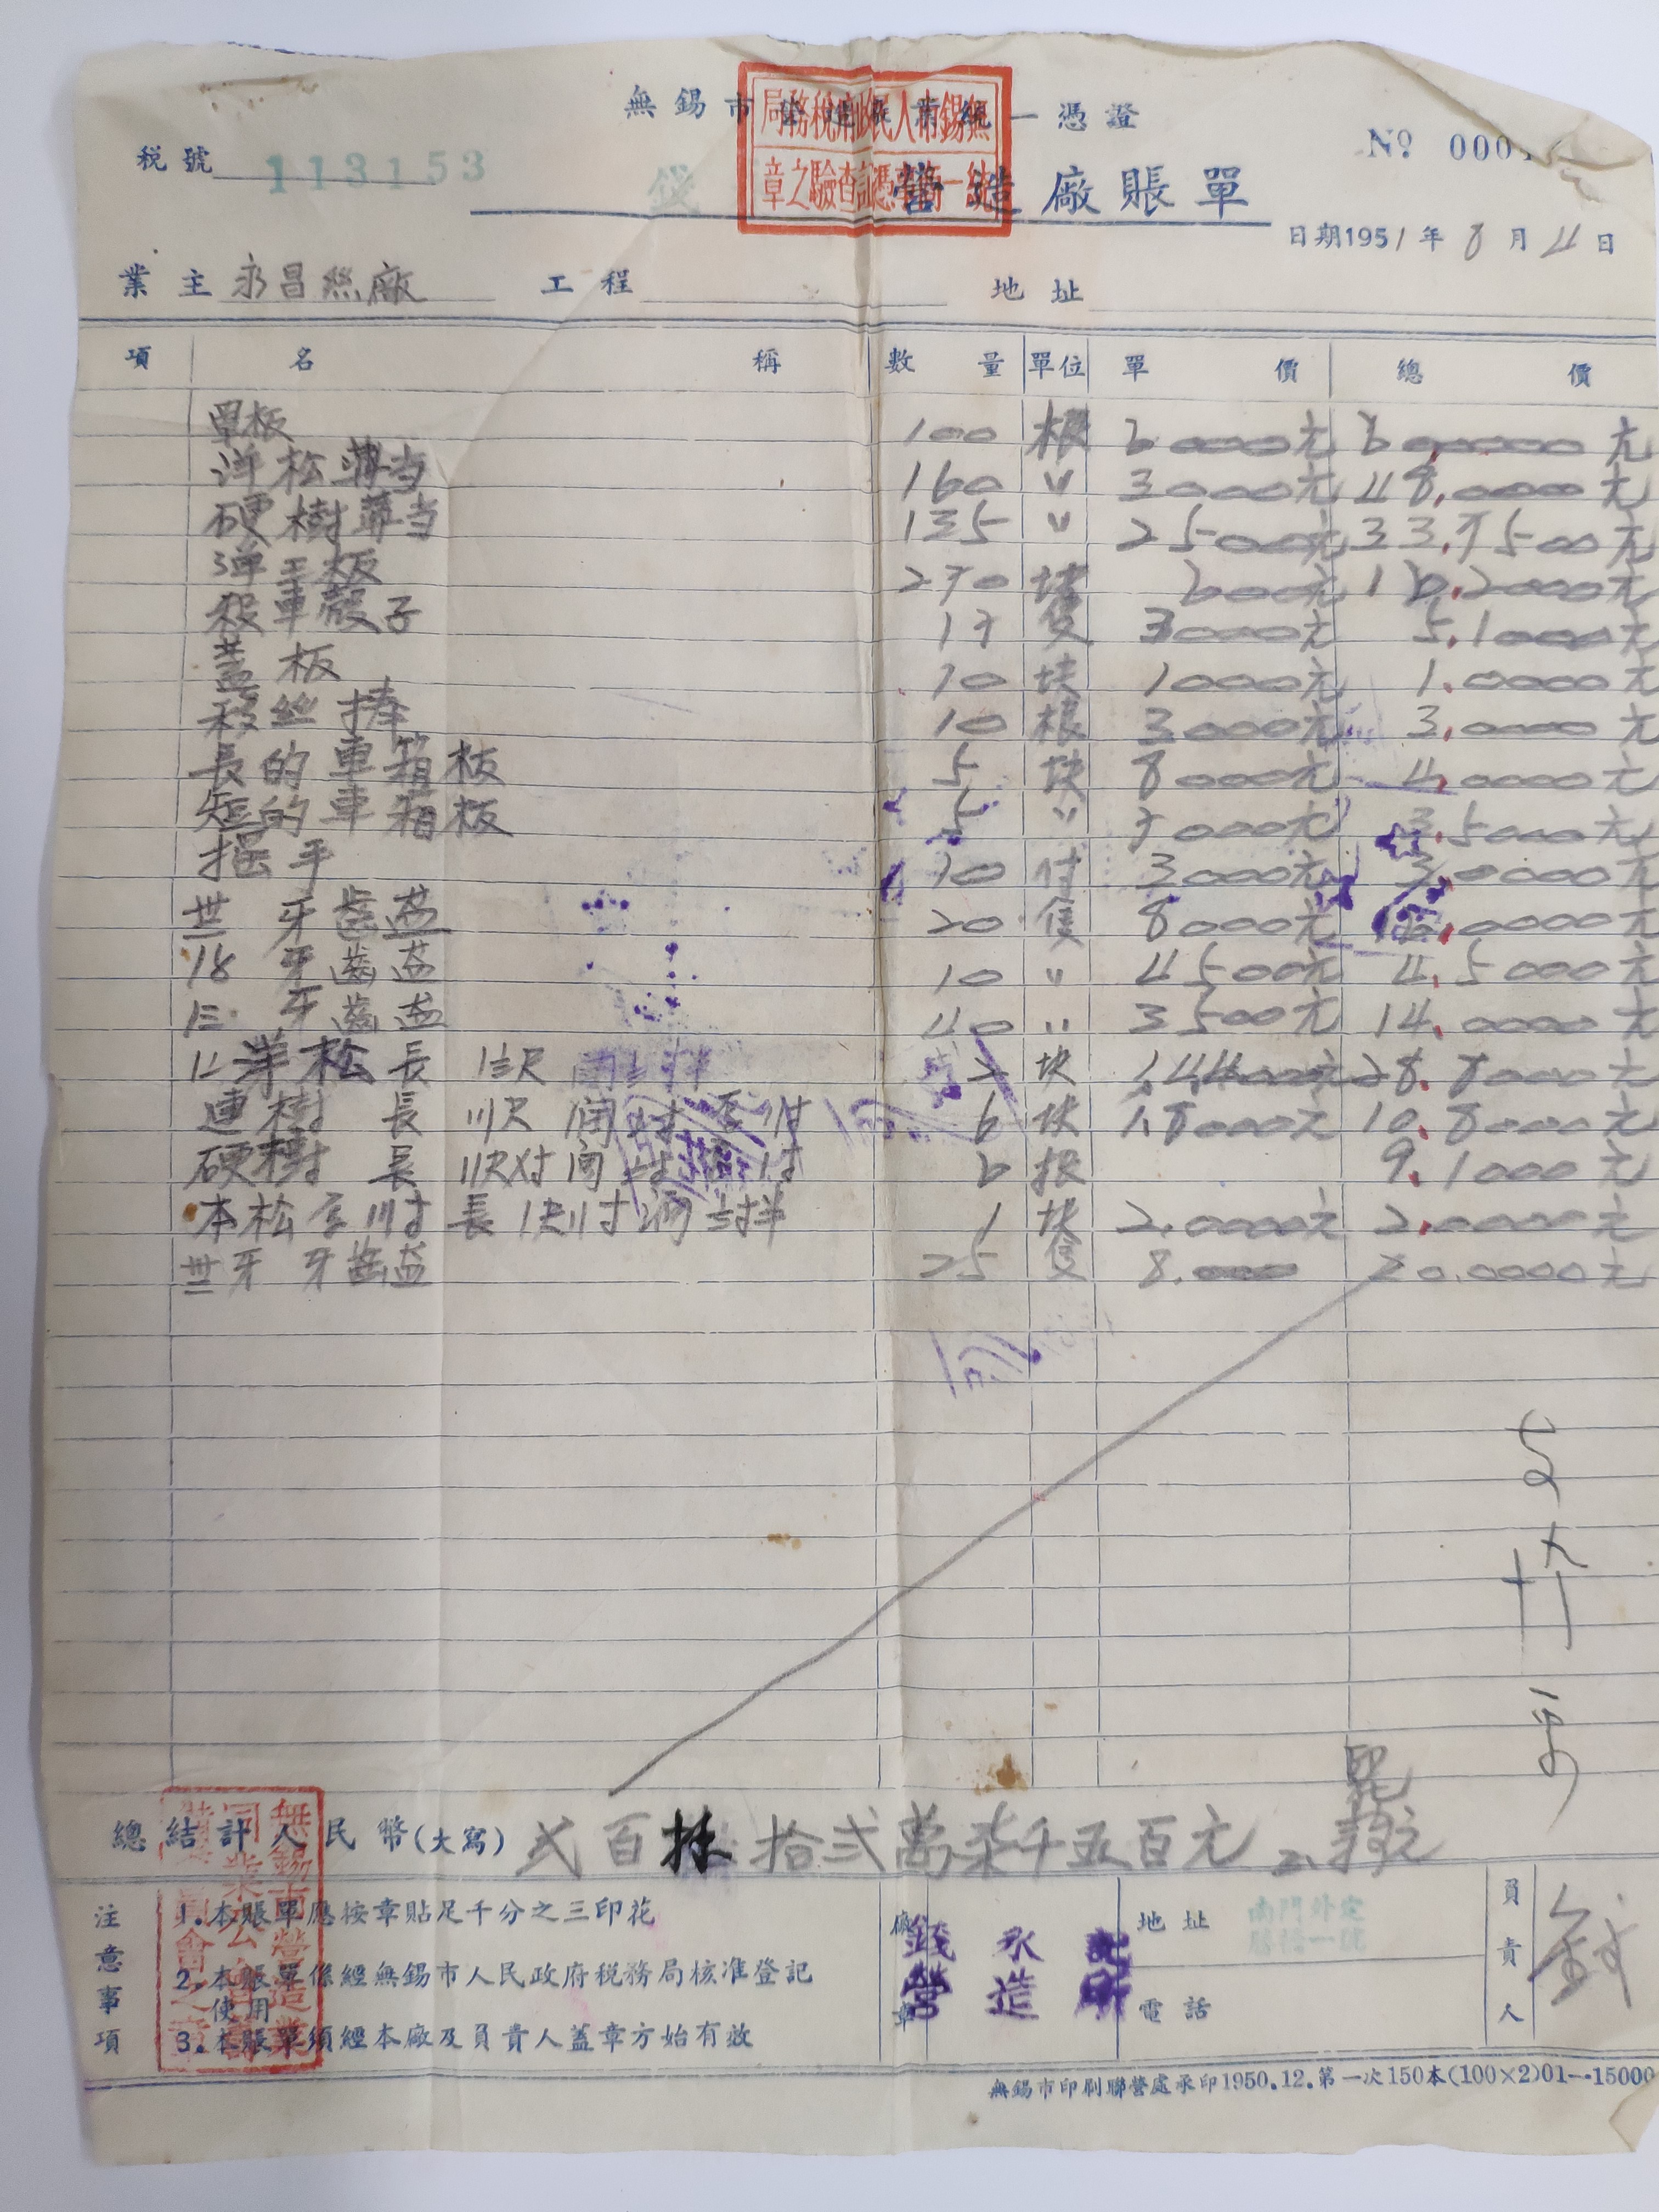 無錫市營造業統一憑證
無錫市人民政府稅務局
統一商業憑証查驗之章
稅號 113153
№ 000
錢 營造廠賬單
日期1951年8月4日
業主 永昌絲廠 工程 地址
項 名稱 數量 單位 單價 總價
單板 100 根 6000元 600000元
洋松薄当 160 〃 3000元 48.0000元
硬樹薄当 135 〃 2500元 33.7500元
弹工板 270 块 600元 16.2000元
車殼子 17 隻 3000元 5.1000元
蓋板 10 块 1000元 1.0000元
絲捧 10 根 3000元 3.0000元
長的車箱板 5 块 8000元 4.0000元
短的車箱板 5 〃 7000元 3.5000元
摇手 10 付 3000元 3.0000元
卅牙齒盘 20 隻 8000元 16.0000元
18牙齒盘 10 〃 4500元 4.5000元
牙齒盘 40 〃 3500元 14.0000元
洋松 長 2 块 1.44000元 28.8000元
樹 長 6 块 1.8000元 10.8000元
硬樹 長 6 根 9.1000元
本松 長 1 块 2.0000元 2.0000元
卅牙 牙齒盘 25 隻 8.000 20.0000元
總結計人民幣(大寫) 弍百 拾弍萬柒千五百元
注意事項
1.本賬單應按章貼足千分之三印花
2.本賬單係經無錫市人民政府稅務局核准登記使用
3.本賬單須經本廠及負責人蓋章方始有效
廠章 錢永 營造
地址 南門外
電話
負責人 錢
無錫市印刷聯營處承印1950.12.第一次150本(100×2)01—15000